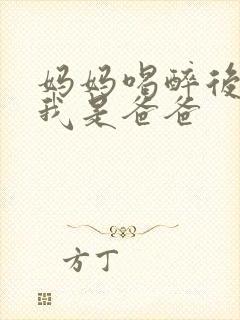 妈妈喝醉後
我是爸爸
方丁